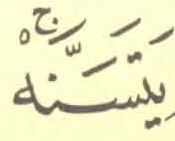 يَتَسَنَّهْ ۚ